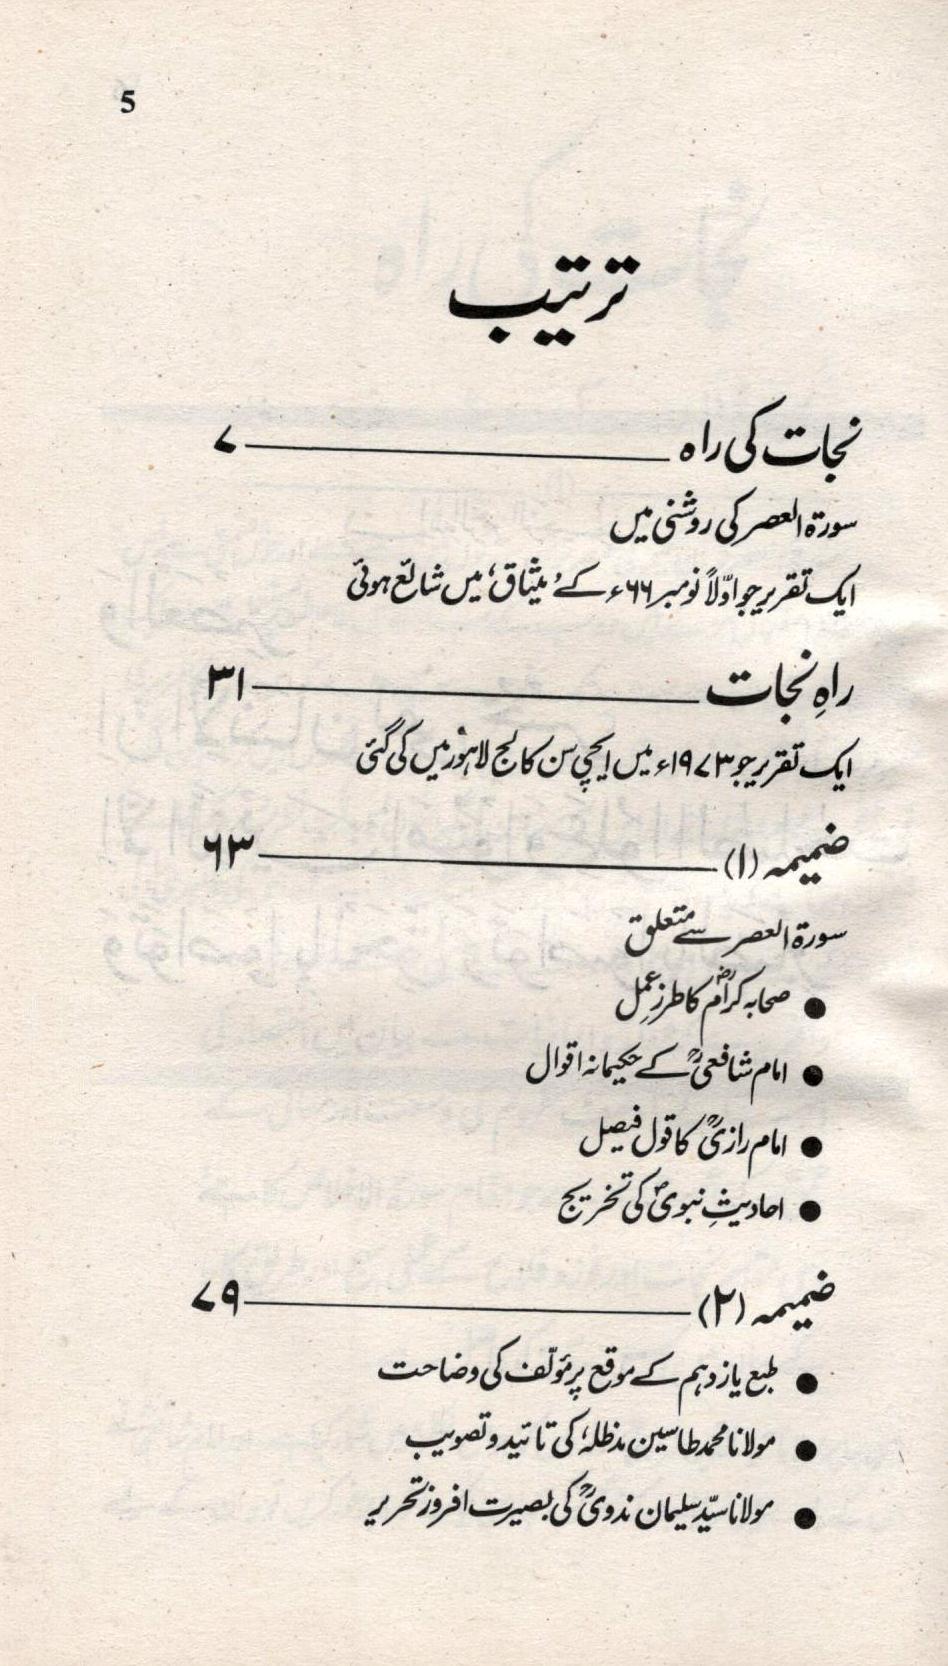 5
ترتیب
نجات کی راہ ——— ۷
سورۃ العصر کی روشنی میں
ایک تقریر جو اوّلاً نومبر ۶۶ء کے ’میثاق‘ میں شائع ہوئی
راہِ نجات ——— ۳۱
ایک تقریر جو ۱۹۷۳ء میں ایچی سن کالج لاہور میں کی گئی
ضمیمہ (۱) ——— ۶۳
سورۃ العصر سے متعلق
● صحابہ کرامؓ کا طرزِ عمل
● امام شافعیؒ کے حکیمانہ اقوال
● امام رازیؒ کا قول فیصل
● احادیثِ نبویؐ کی تخریج
ضمیمہ (۲) ——— ۷۹
● طبع یازدہم کے موقع پر مؤلّف کی وضاحت
● مولانا محمد طاسین مدظلہٗ کی تائید و تصویب
● مولانا سیّد سلیمان ندویؒ کی بصیرت افروز تحریر